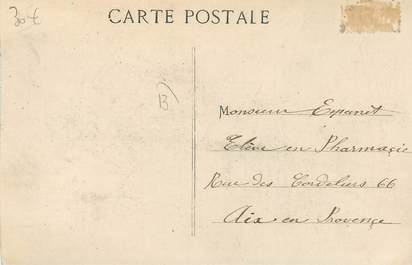 30 €
CARTE POSTALE
B
Monsieur Espanet
Elève en Pharmacie
Rue des Cordeliers 66
Aix-en Provence